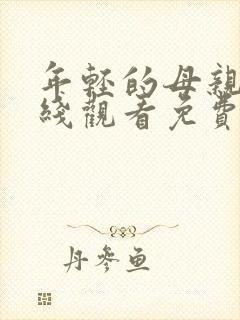 年輕的母親
綫觀看免費
丹參魚